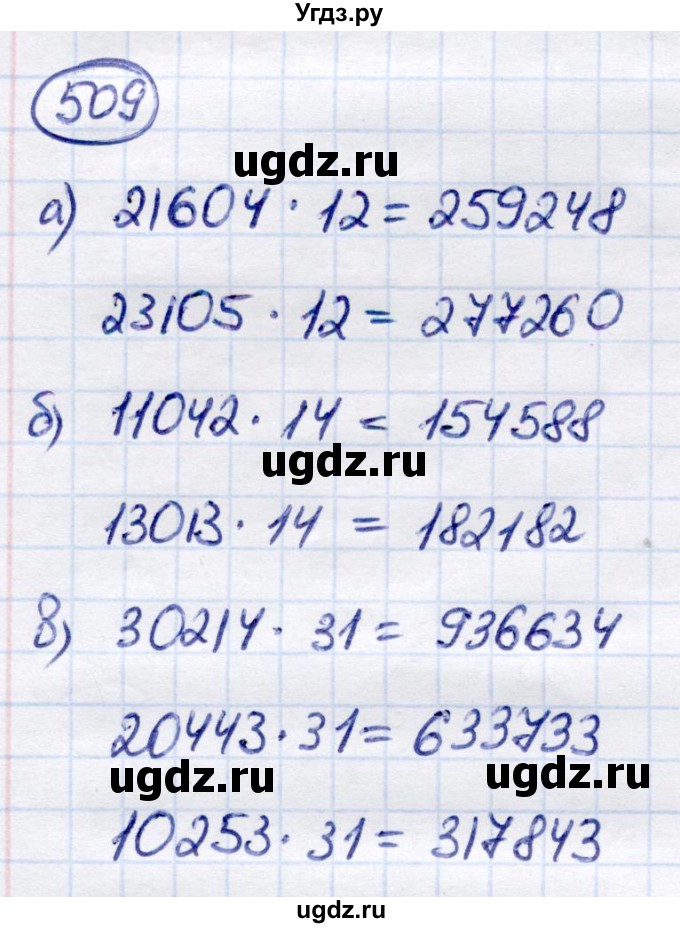 Угдз.ру
509
ugdz.ru
а) 21604 · 12 = 259248
23105 · 12 = 277260
б) 11042 · 14 = 154588
ugdz.ru
13013 · 14 = 182182
в) 30214 · 31 = 936634
20443 · 31 = 633733
ugdz.ru
ugdz.ru
10253 · 31 = 317843
ugdz.ru